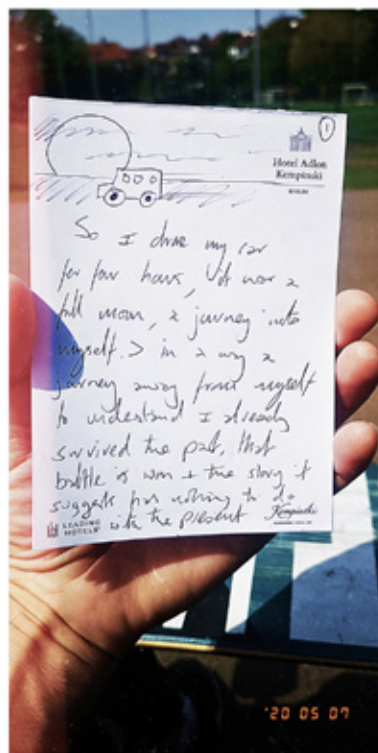 1
Hotel Adlon
Kempinski
BERLIN
So I drive my car
for four hours, it was a
full moon, a journey into
myself. > in a way a
journey away from myself
to understand I already
survived the past, that
battle is won + the story it
suggests has nothing to do
with the present
LEADING
HOTELS
Kempinski
'20 05 07